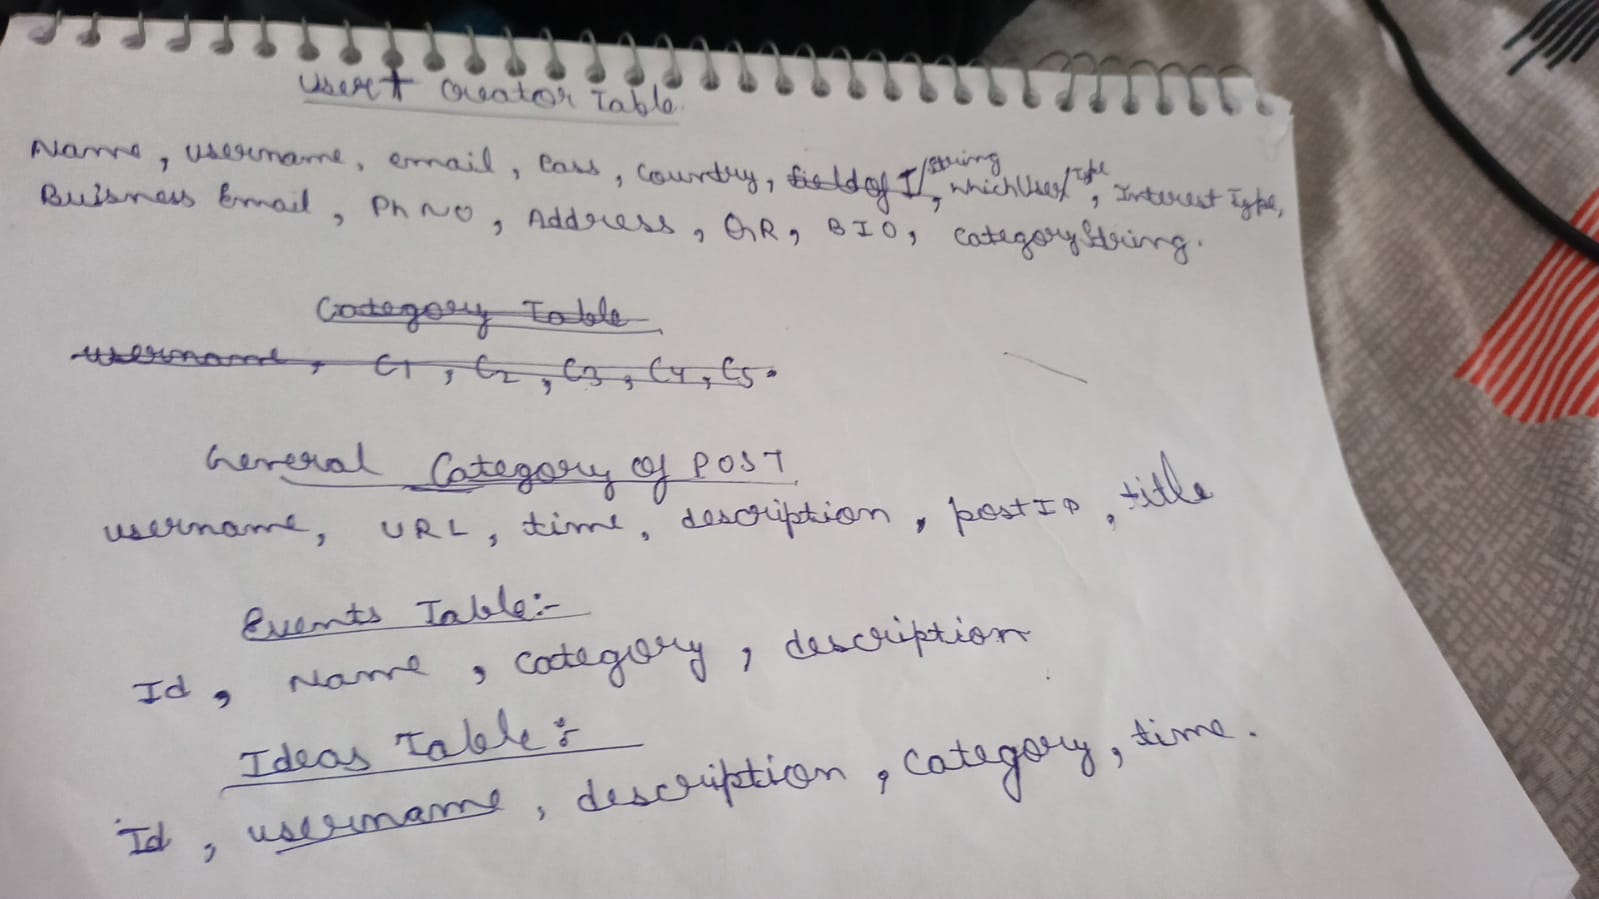 User + Creator Table.
Name, username, email, Pass, Country, field of I/String, which User/Type, Interest Type,
Buisness Email, Ph No, Address, QR, BIO, CategoryString.
Category Table
username, C1, C2, C3, C4, C5.
General Category of POST
username, URL, time, description, postID, title
Events Table:-
Id, Name, Category, description
Ideas Table:
Id, username, description, Category, time.